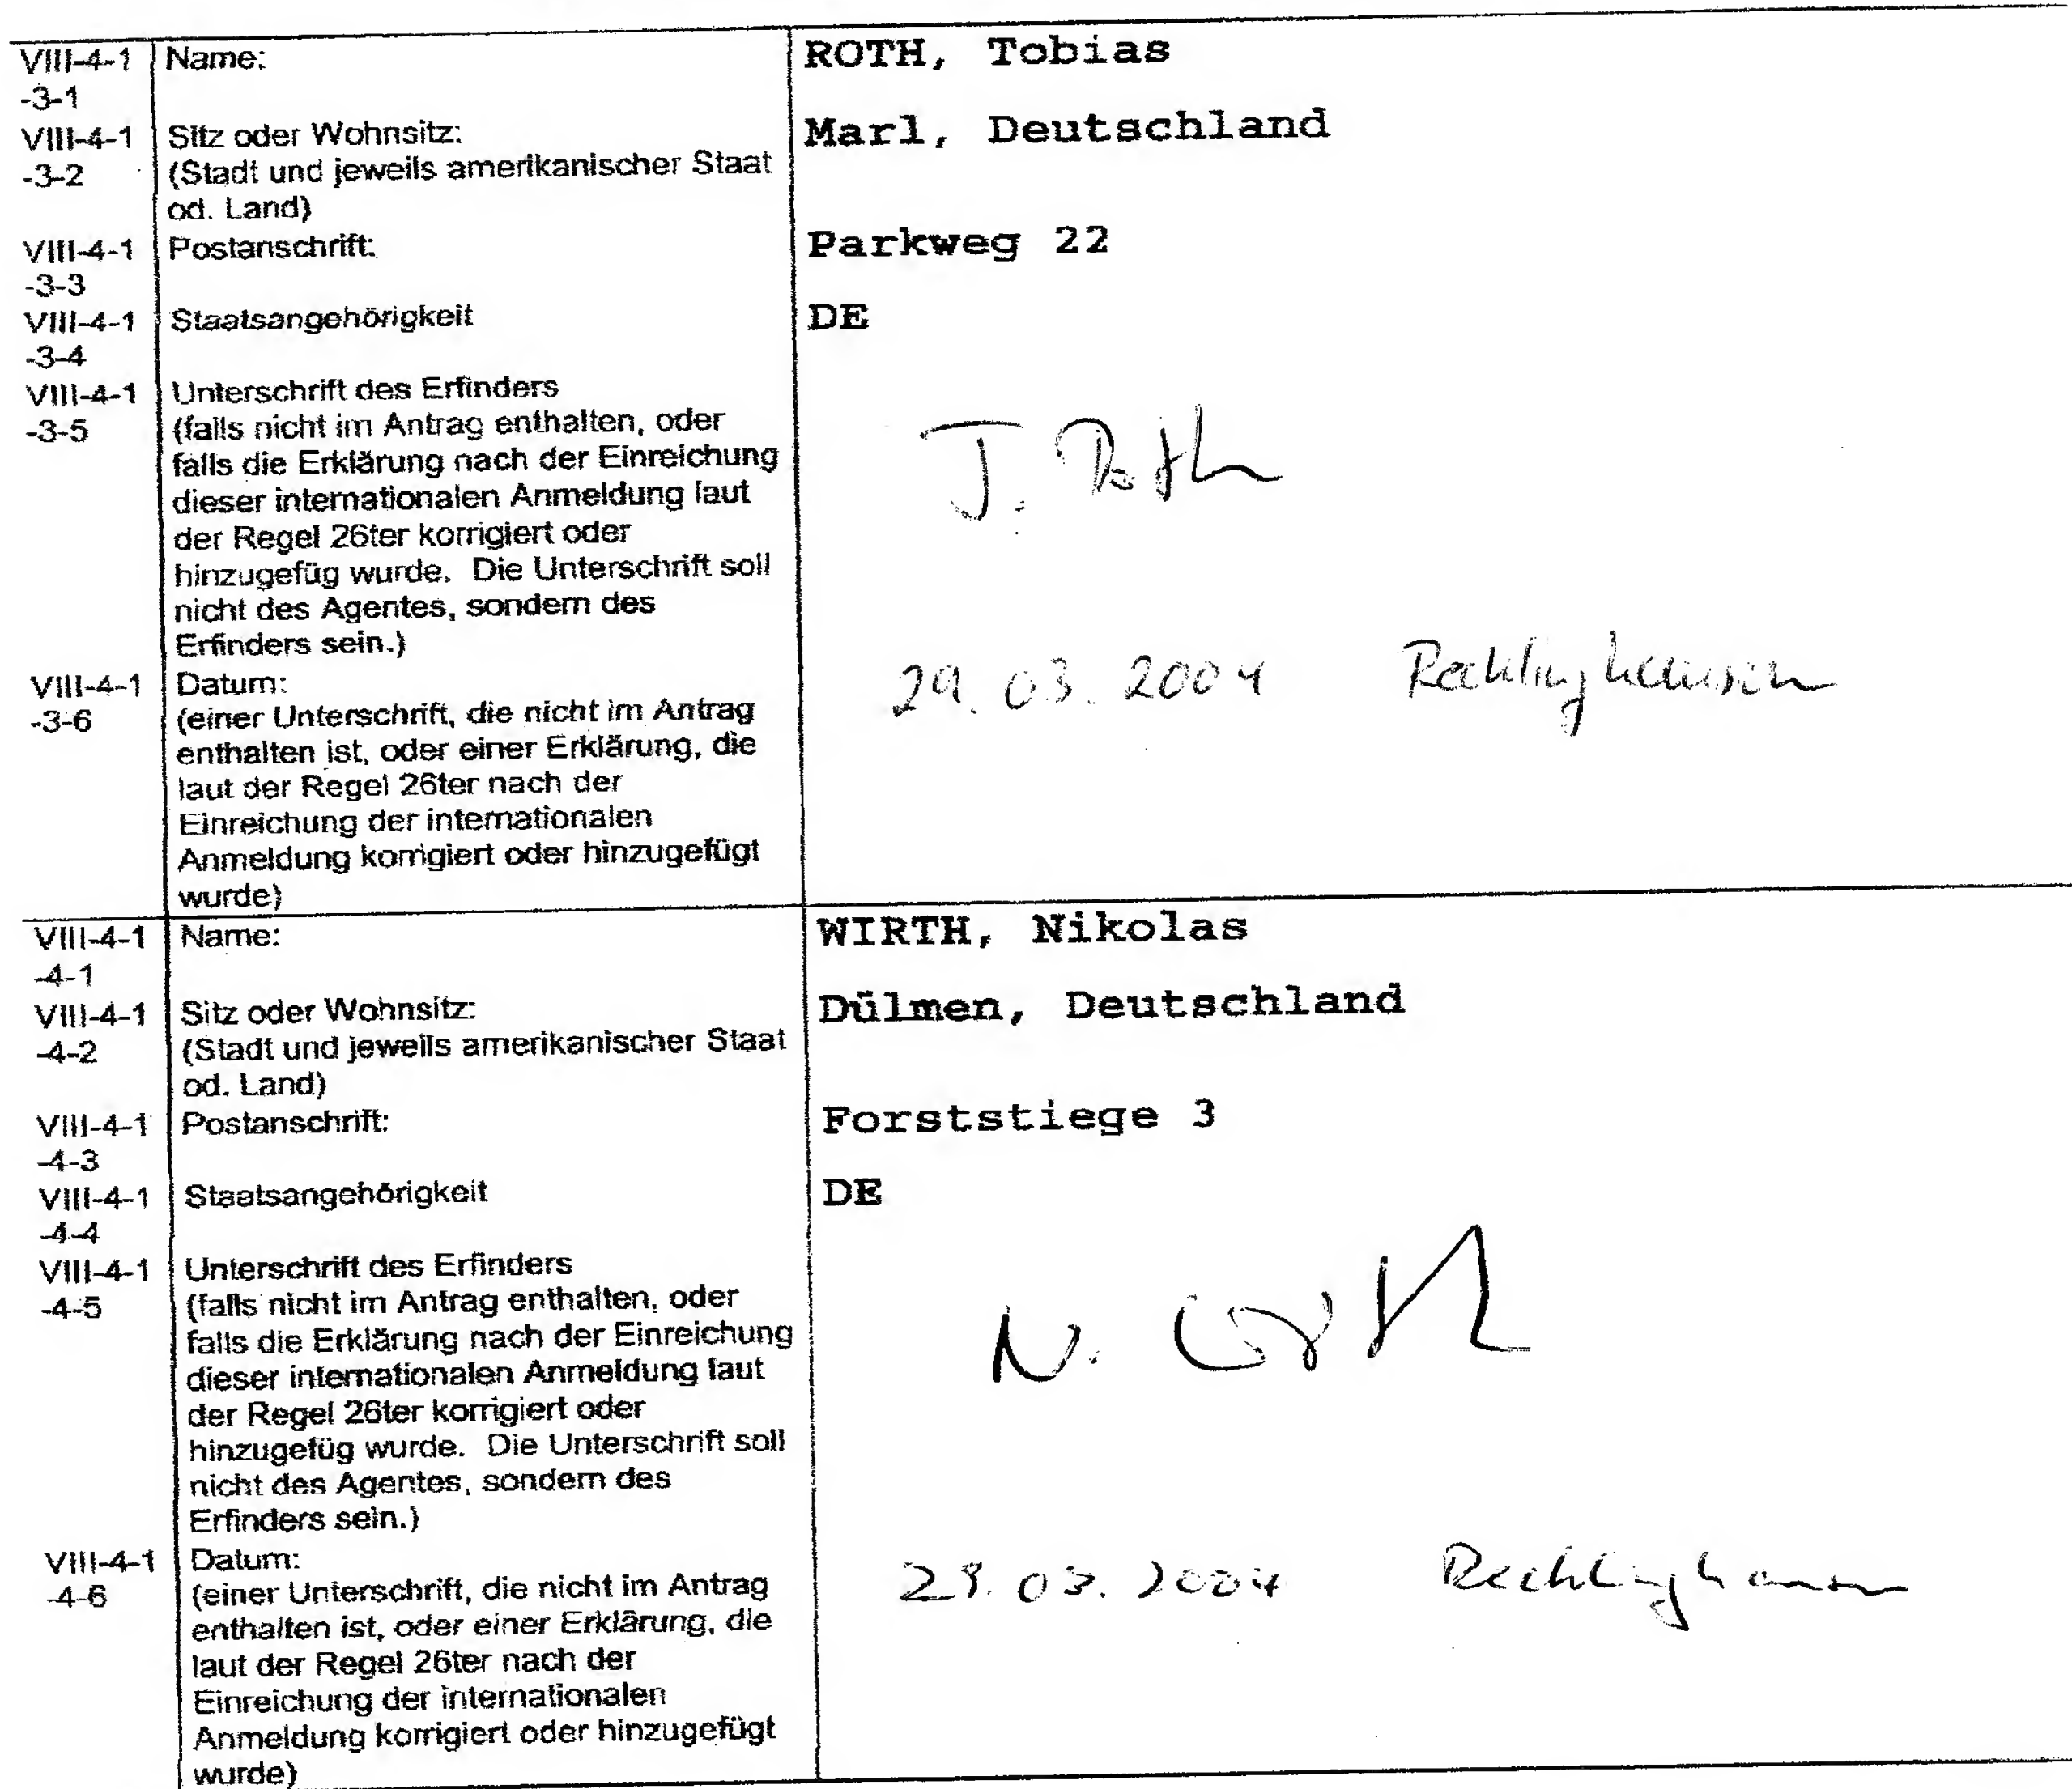 VIII-4-1 Name: ROTH, Tobias
-3-1
VIII-4-1 Sitz oder Wohnsitz: Marl, Deutschland
-3-2 (Stadt und jeweils amerikanischer Staat
od. Land)
VIII-4-1 Postanschrift: Parkweg 22
-3-3
VIII-4-1 Staatsangehörigkeit DE
-3-4
VIII-4-1 Unterschrift des Erfinders
-3-5 (falls nicht im Antrag enthalten, oder
falls die Erklärung nach der Einreichung T. Roth
dieser internationalen Anmeldung laut
der Regel 26ter korrigiert oder
hinzugefüg wurde. Die Unterschrift soll
nicht des Agentes, sondern des
Erfinders sein.)
VIII-4-1 Datum: 29.03.2004 Recklinghausen
-3-6 (einer Unterschrift, die nicht im Antrag
enthalten ist, oder einer Erklärung, die
laut der Regel 26ter nach der
Einreichung der internationalen
Anmeldung korrigiert oder hinzugefügt
wurde)
VIII-4-1 Name: WIRTH, Nikolas
-4-1
VIII-4-1 Sitz oder Wohnsitz: Dülmen, Deutschland
-4-2 (Stadt und jeweils amerikanischer Staat
od. Land)
VIII-4-1 Postanschrift: Forststiege 3
-4-3
VIII-4-1 Staatsangehörigkeit DE
-4-4
VIII-4-1 Unterschrift des Erfinders
-4-5 (falls nicht im Antrag enthalten, oder
falls die Erklärung nach der Einreichung N. Wirth
dieser internationalen Anmeldung laut
der Regel 26ter korrigiert oder
hinzugefüg wurde. Die Unterschrift soll
nicht des Agentes, sondern des
Erfinders sein.)
VIII-4-1 Datum: 29.03.2004 Recklinghausen
-4-6 (einer Unterschrift, die nicht im Antrag
enthalten ist, oder einer Erklärung, die
laut der Regel 26ter nach der
Einreichung der internationalen
Anmeldung korrigiert oder hinzugefügt
wurde)